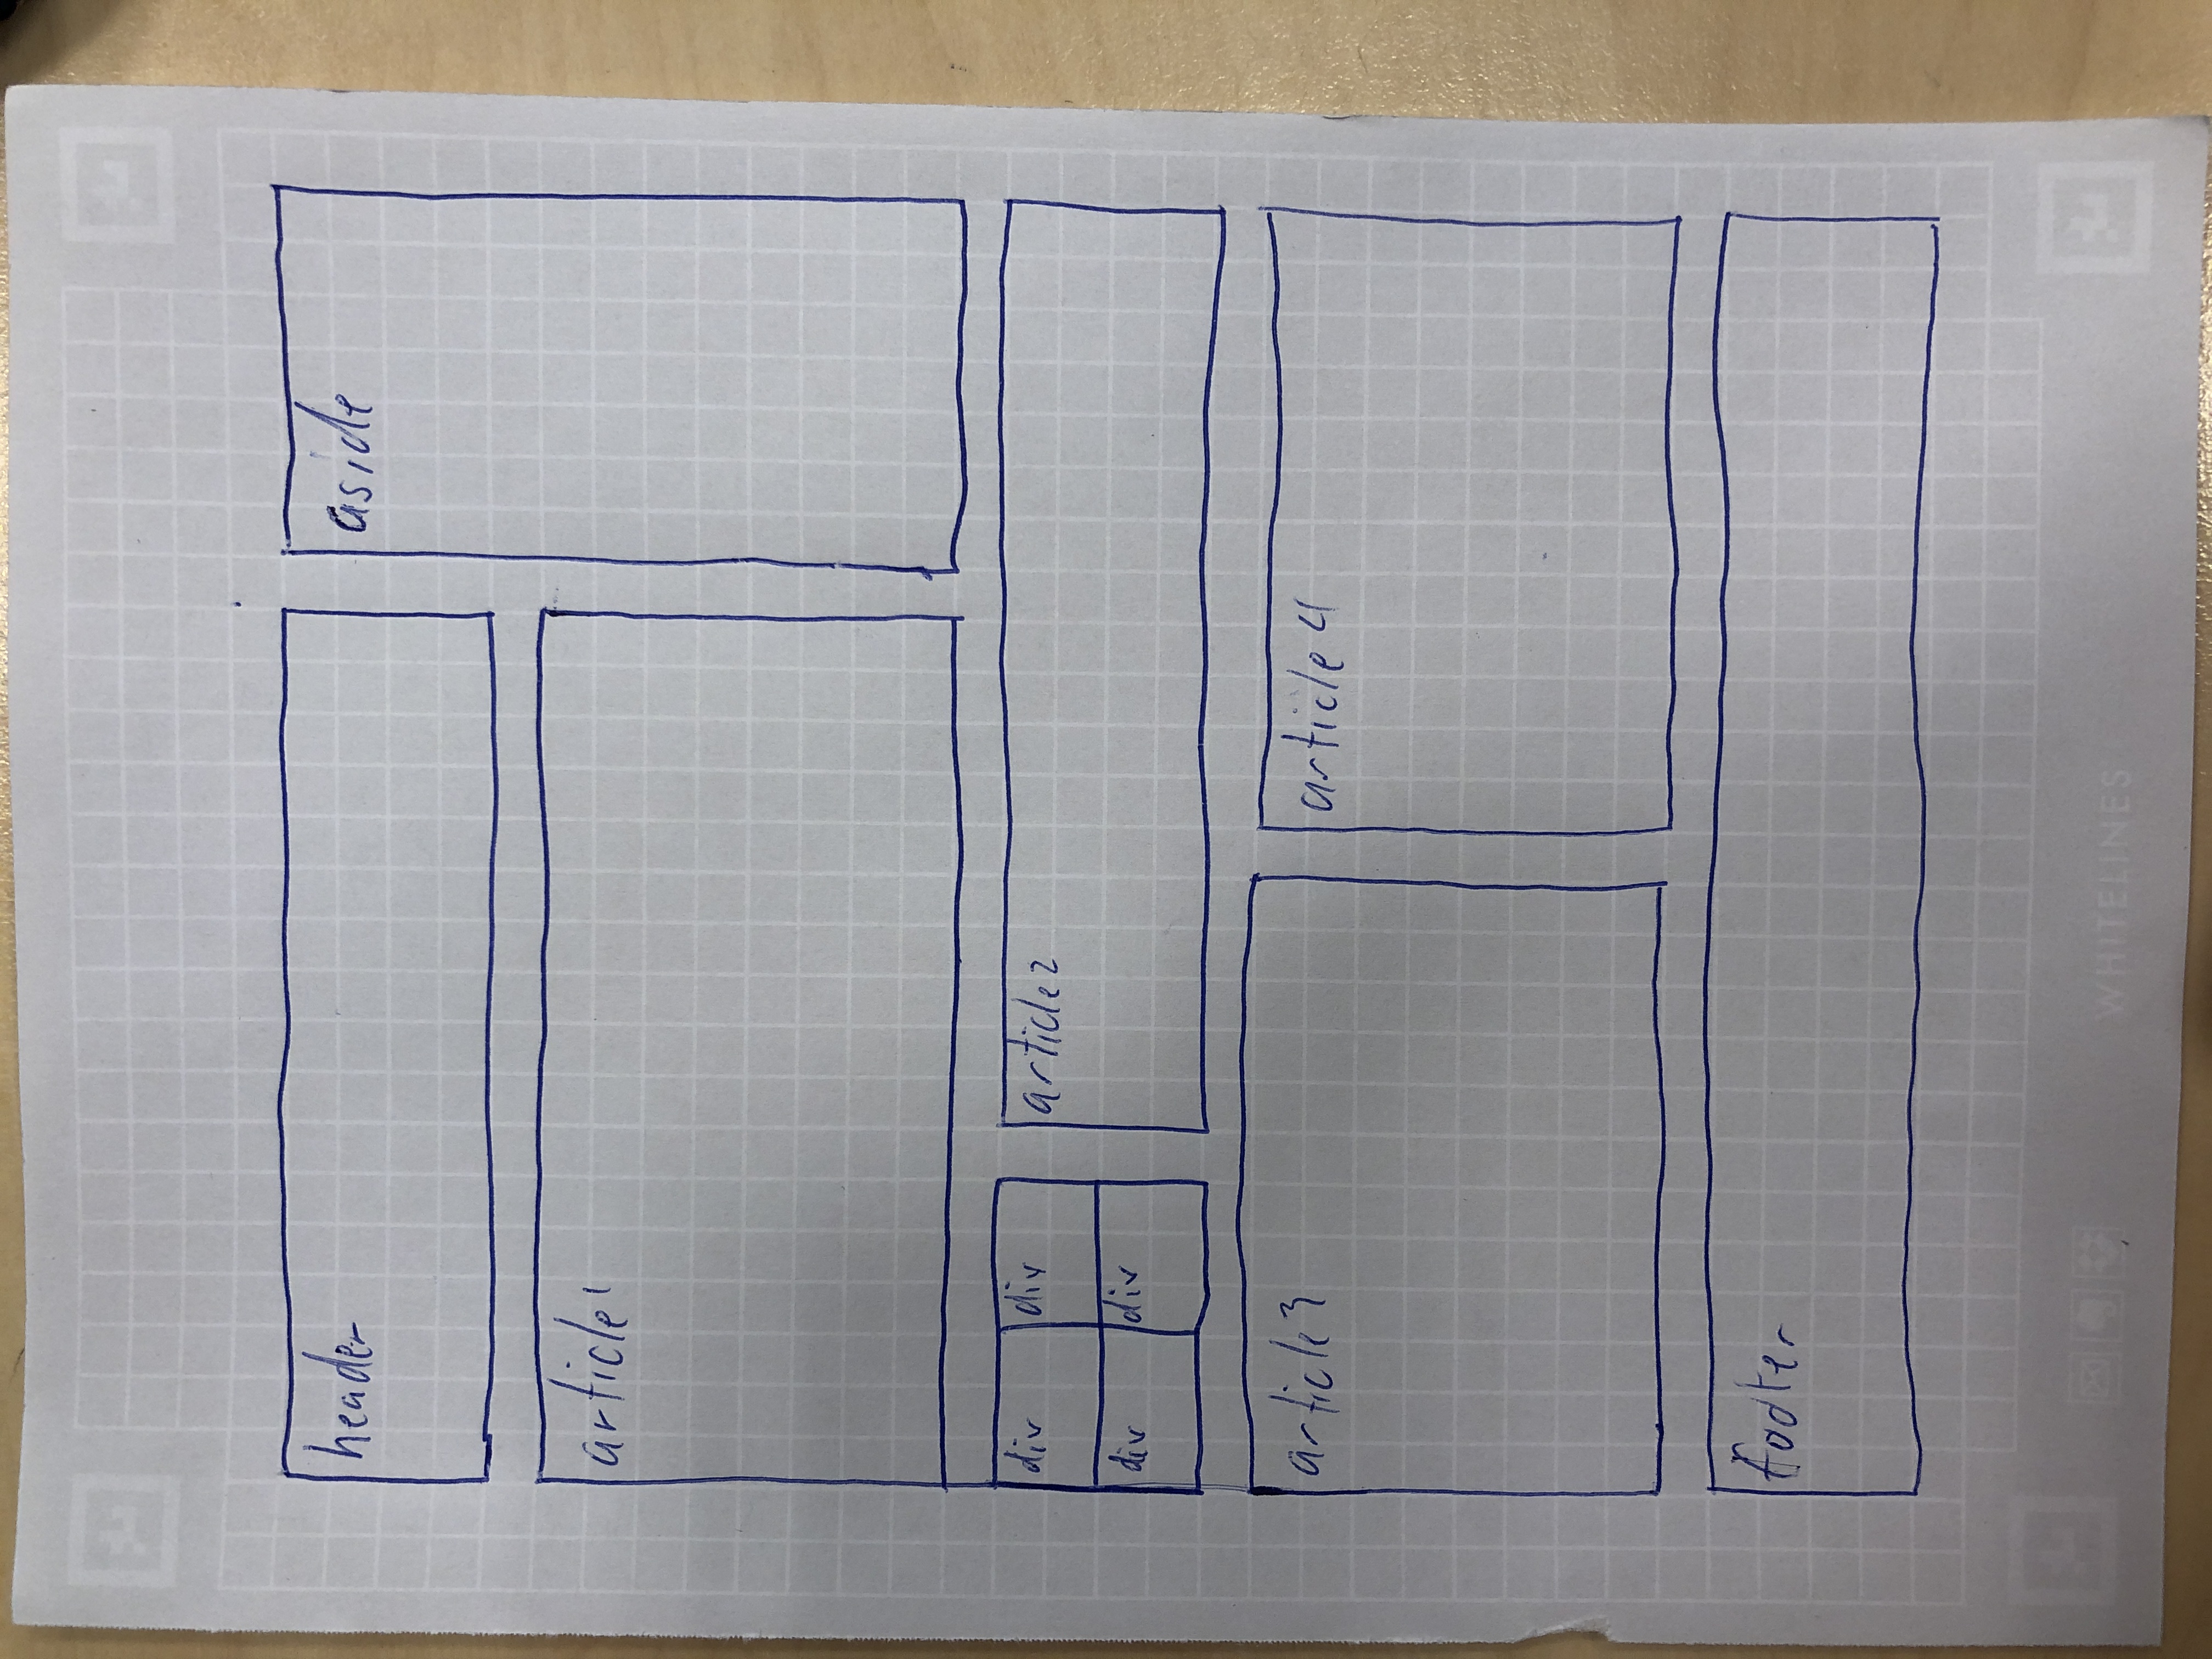 header
aside
article1
div
div
article2
div
div
article3
article4
footer
WHITELINES